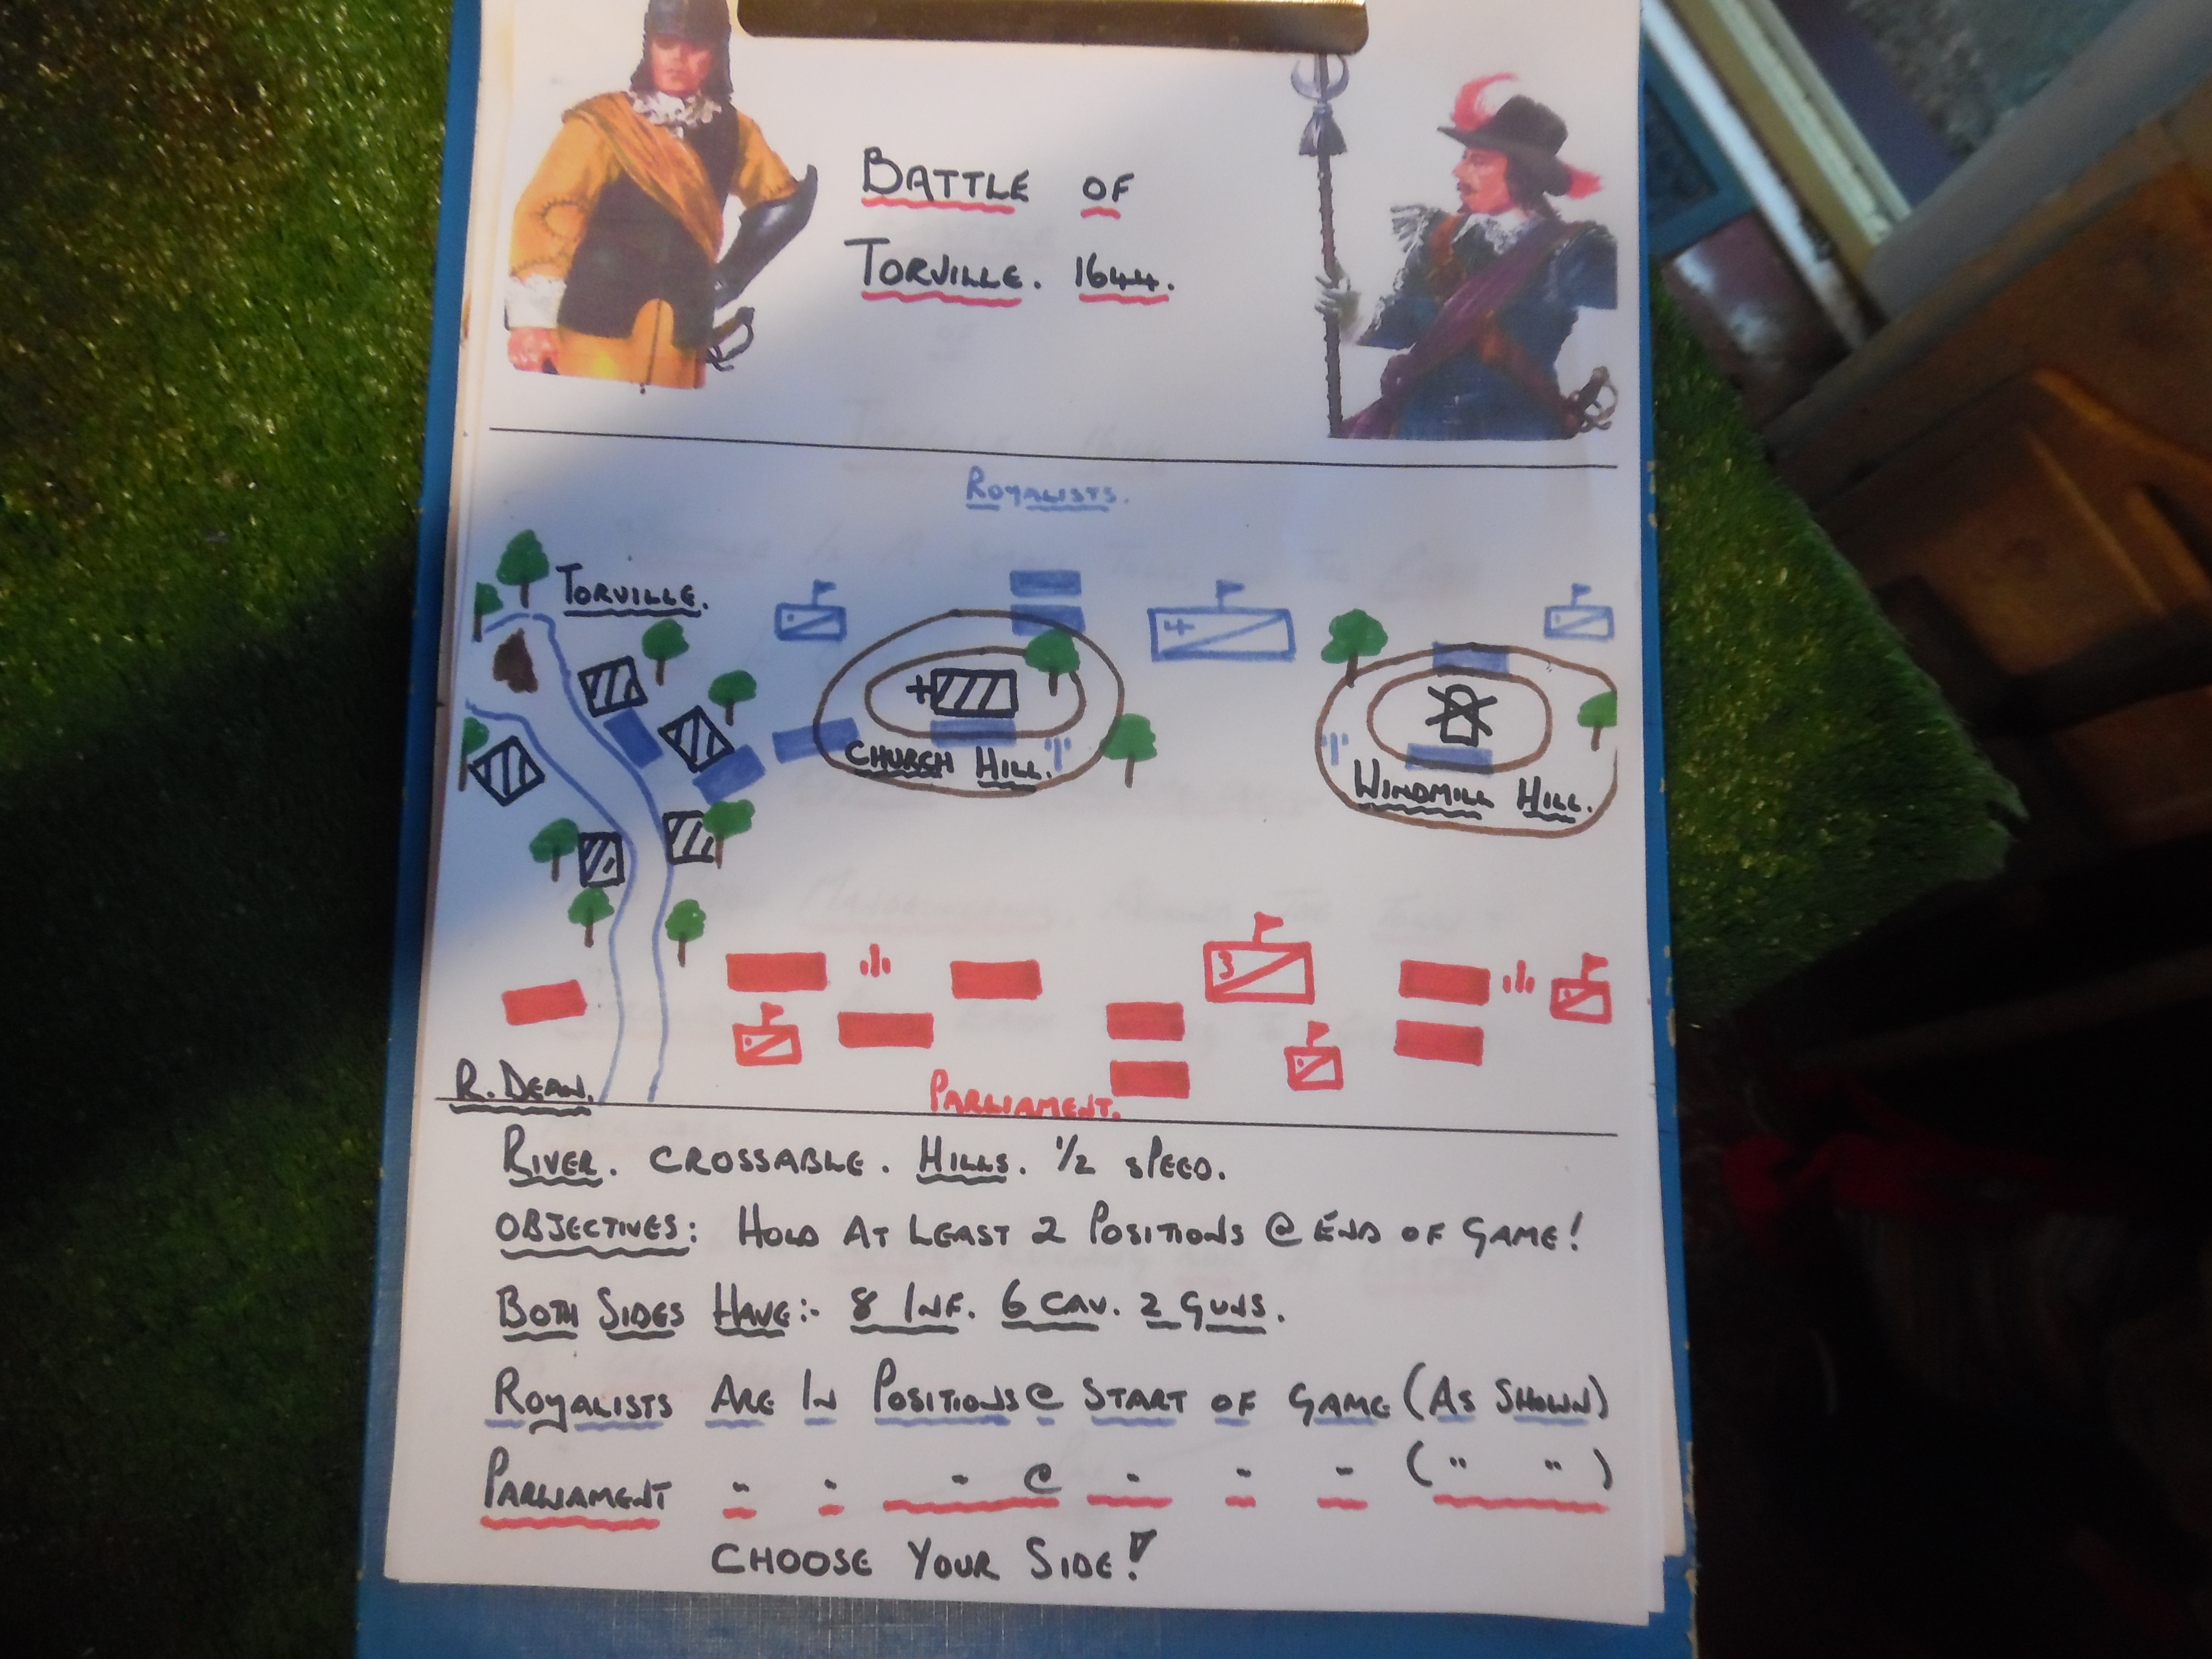 BATTLE OF
TORVILLE. 1644.
ROYALISTS.
TORVILLE.
4
CHURCH HILL.
WINDMILL HILL.
3
R. DEAN.
PARLIAMENT.
RIVER. CROSSABLE. HILLS. 1/2 SPEED.
OBJECTIVES: HOLD AT LEAST 2 POSITIONS @ END OF GAME!
BOTH SIDES HAVE:- 8 INF. 6 CAV. 2 GUNS.
ROYALISTS ARE IN POSITIONS @ START OF GAME (AS SHOWN)
PARLIAMENT " " " @ " " " (" ")
CHOOSE YOUR SIDE!